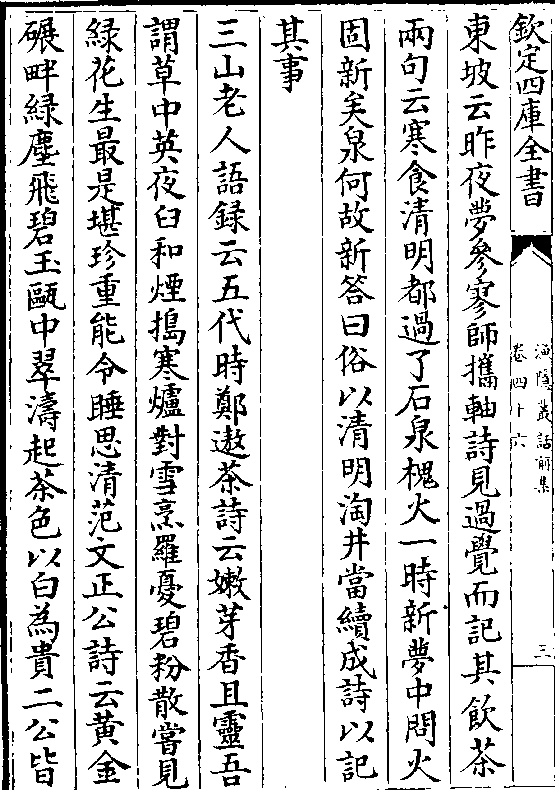 欽定四庫全書
漁隱叢話前集
卷四十六
三
東坡云昨夜夢參寥師攜軸詩見過覺而記其飲茶
兩句云寒食清明都過了石泉槐火一時新夢中問火
固新矣泉何故新答曰俗以清明淘井當續成詩以記
其事
三山老人語録云五代時鄭遨茶詩云嫩芽香且靈吾
謂草中英夜臼和煙搗寒爐對雪烹羅憂碧粉散嘗見
緑花生最是堪珍重能令睡思清范文正公詩云黄金
碾畔緑塵飛碧玉甌中翠濤起茶色以白為貴二公皆